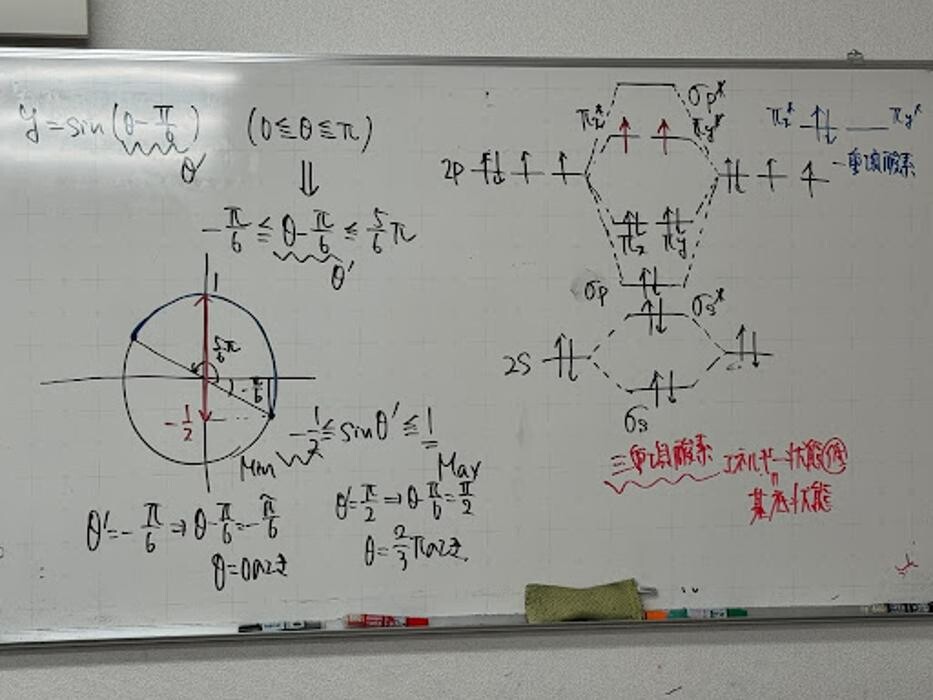 y = sin(θ - π/6) (0 ≦ θ ≦ π)
θ'
⇓
-π/6 ≦ θ - π/6 ≦ 5/6 π
θ'
1
5/6 π
-π/6
-1/2
-1/2 ≦ sinθ' ≦ 1
Min
Max
θ' = -π/6 ⇒ θ - π/6 = -π/6
θ = 0のとき
θ' = π/2 ⇒ θ - π/6 = π/2
θ = 2/3 πのとき
σp*
πx* ↑ ↑ πy*
2p ↑↓ ↑ ↑
↑↓ ↑ ↑
↑↓ ↑↓
πx πy
σp ↑↓
↑↓ σs*
2s ↑↓
↑↓
↑↓
σs
πx* ↑↓ πy*
一重項酸素
三重項酸素 エネルギー状態 低
〃
基底状態